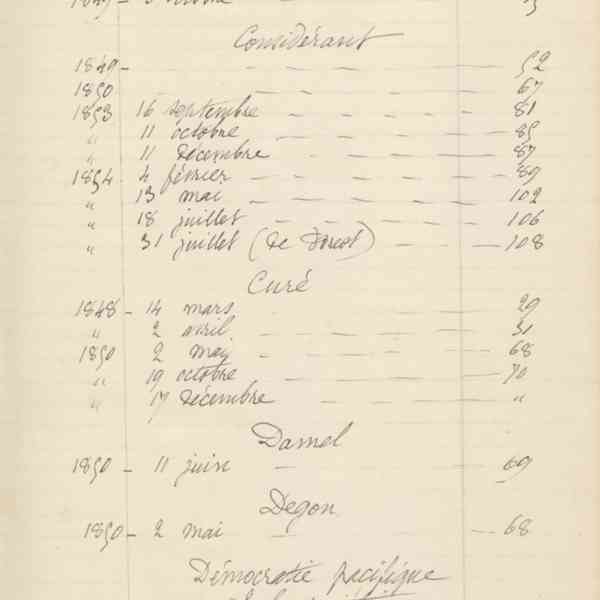 Considérant
1849 - 52
1850 67
1853 16 septembre 81
" 11 octobre 85
" 11 décembre 87
1854 4 février 89
" 13 mai 102
" 18 juillet 106
" 31 juillet (de Dorest) 108
Curé
1848 - 14 mars 29
" 2 avril 31
1850 2 mai 68
" 19 octobre 70
" 17 décembre "
Damel
1850 - 11 juin 69
Degon
1850 - 2 mai 68
Démocratie pacifique